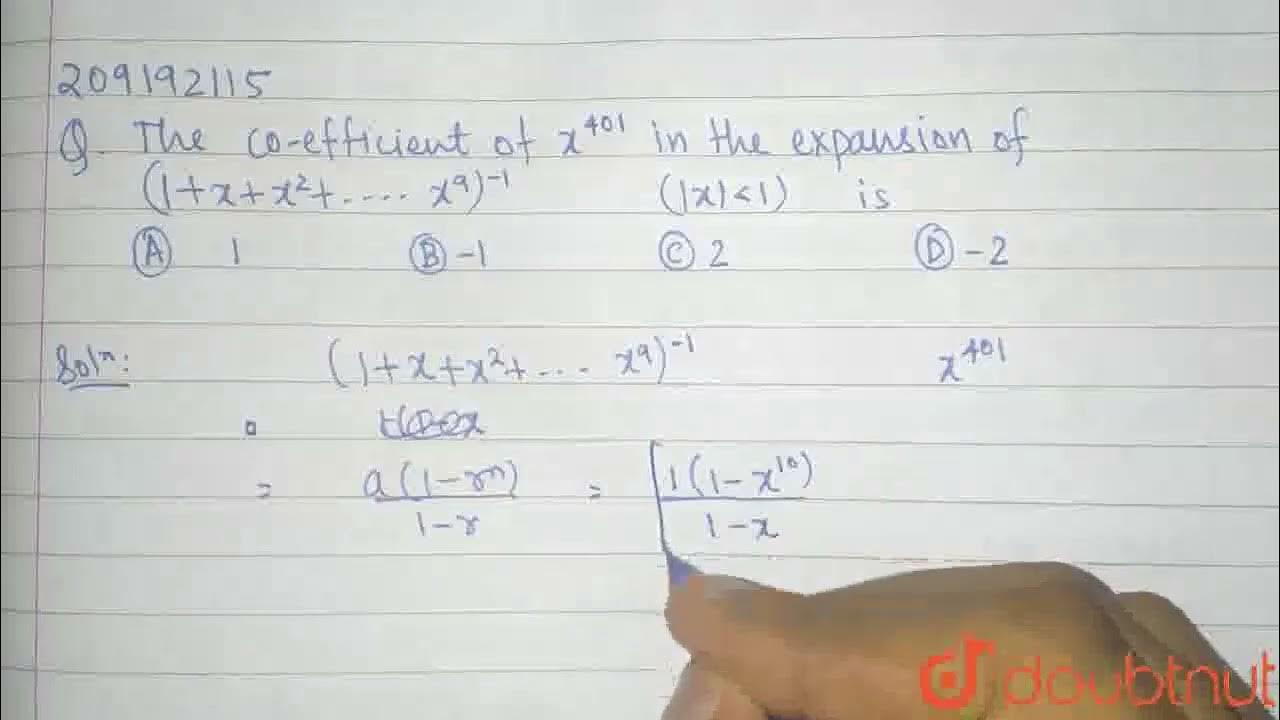 209192115
Q. The co-efficient of x⁴⁰¹ in the expansion of
(1+x+x²+.... x⁹)⁻¹ (|x|<1) is
Ⓐ 1 Ⓑ -1 Ⓒ 2 Ⓓ -2
Solⁿ: (1+x+x²+... x⁹)⁻¹ x⁴⁰¹
= a(1-rⁿ)/1-r = [1(1-x¹⁰)/1-x
doubtnut